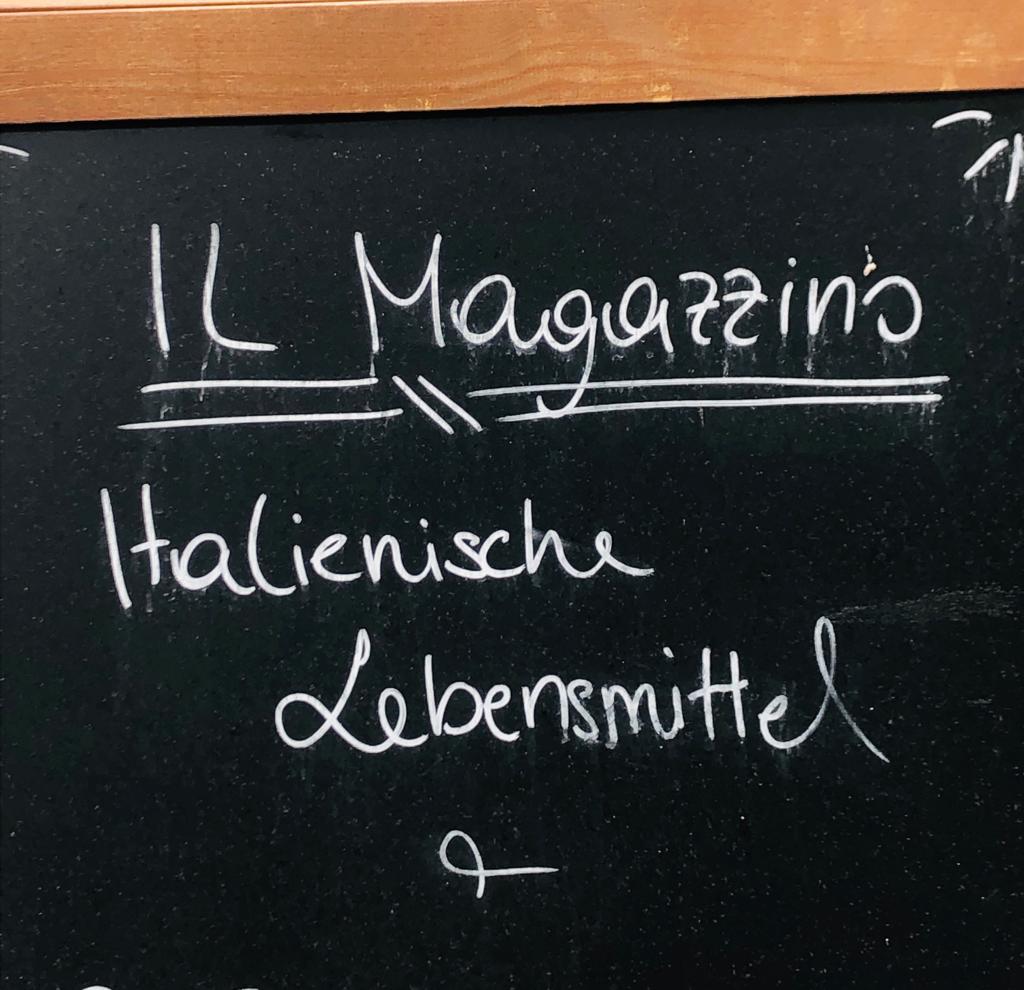 IL Magazzino
Italienische
Lebensmittel
&